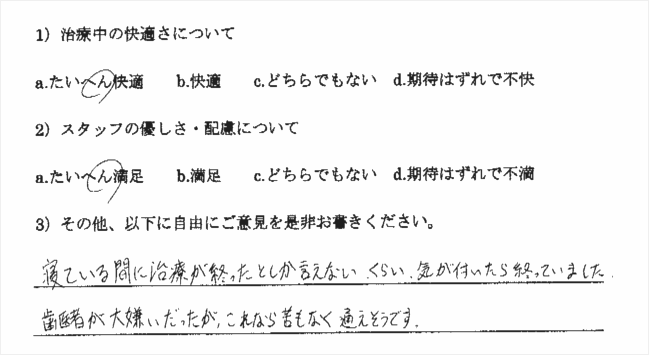 1）治療中の快適さについて
a.たいへん快適　b.快適　c.どちらでもない　d.期待はずれで不快
2）スタッフの優しさ・配慮について
a.たいへん満足　b.満足　c.どちらでもない　d.期待はずれで不満
3）その他、以下に自由にご意見を是非お書きください。
寝ている間に治療が終ったとしか言えないくらい、気が付いたら終っていました.
歯医者が大嫌いだったが、これなら苦もなく通えそうです.